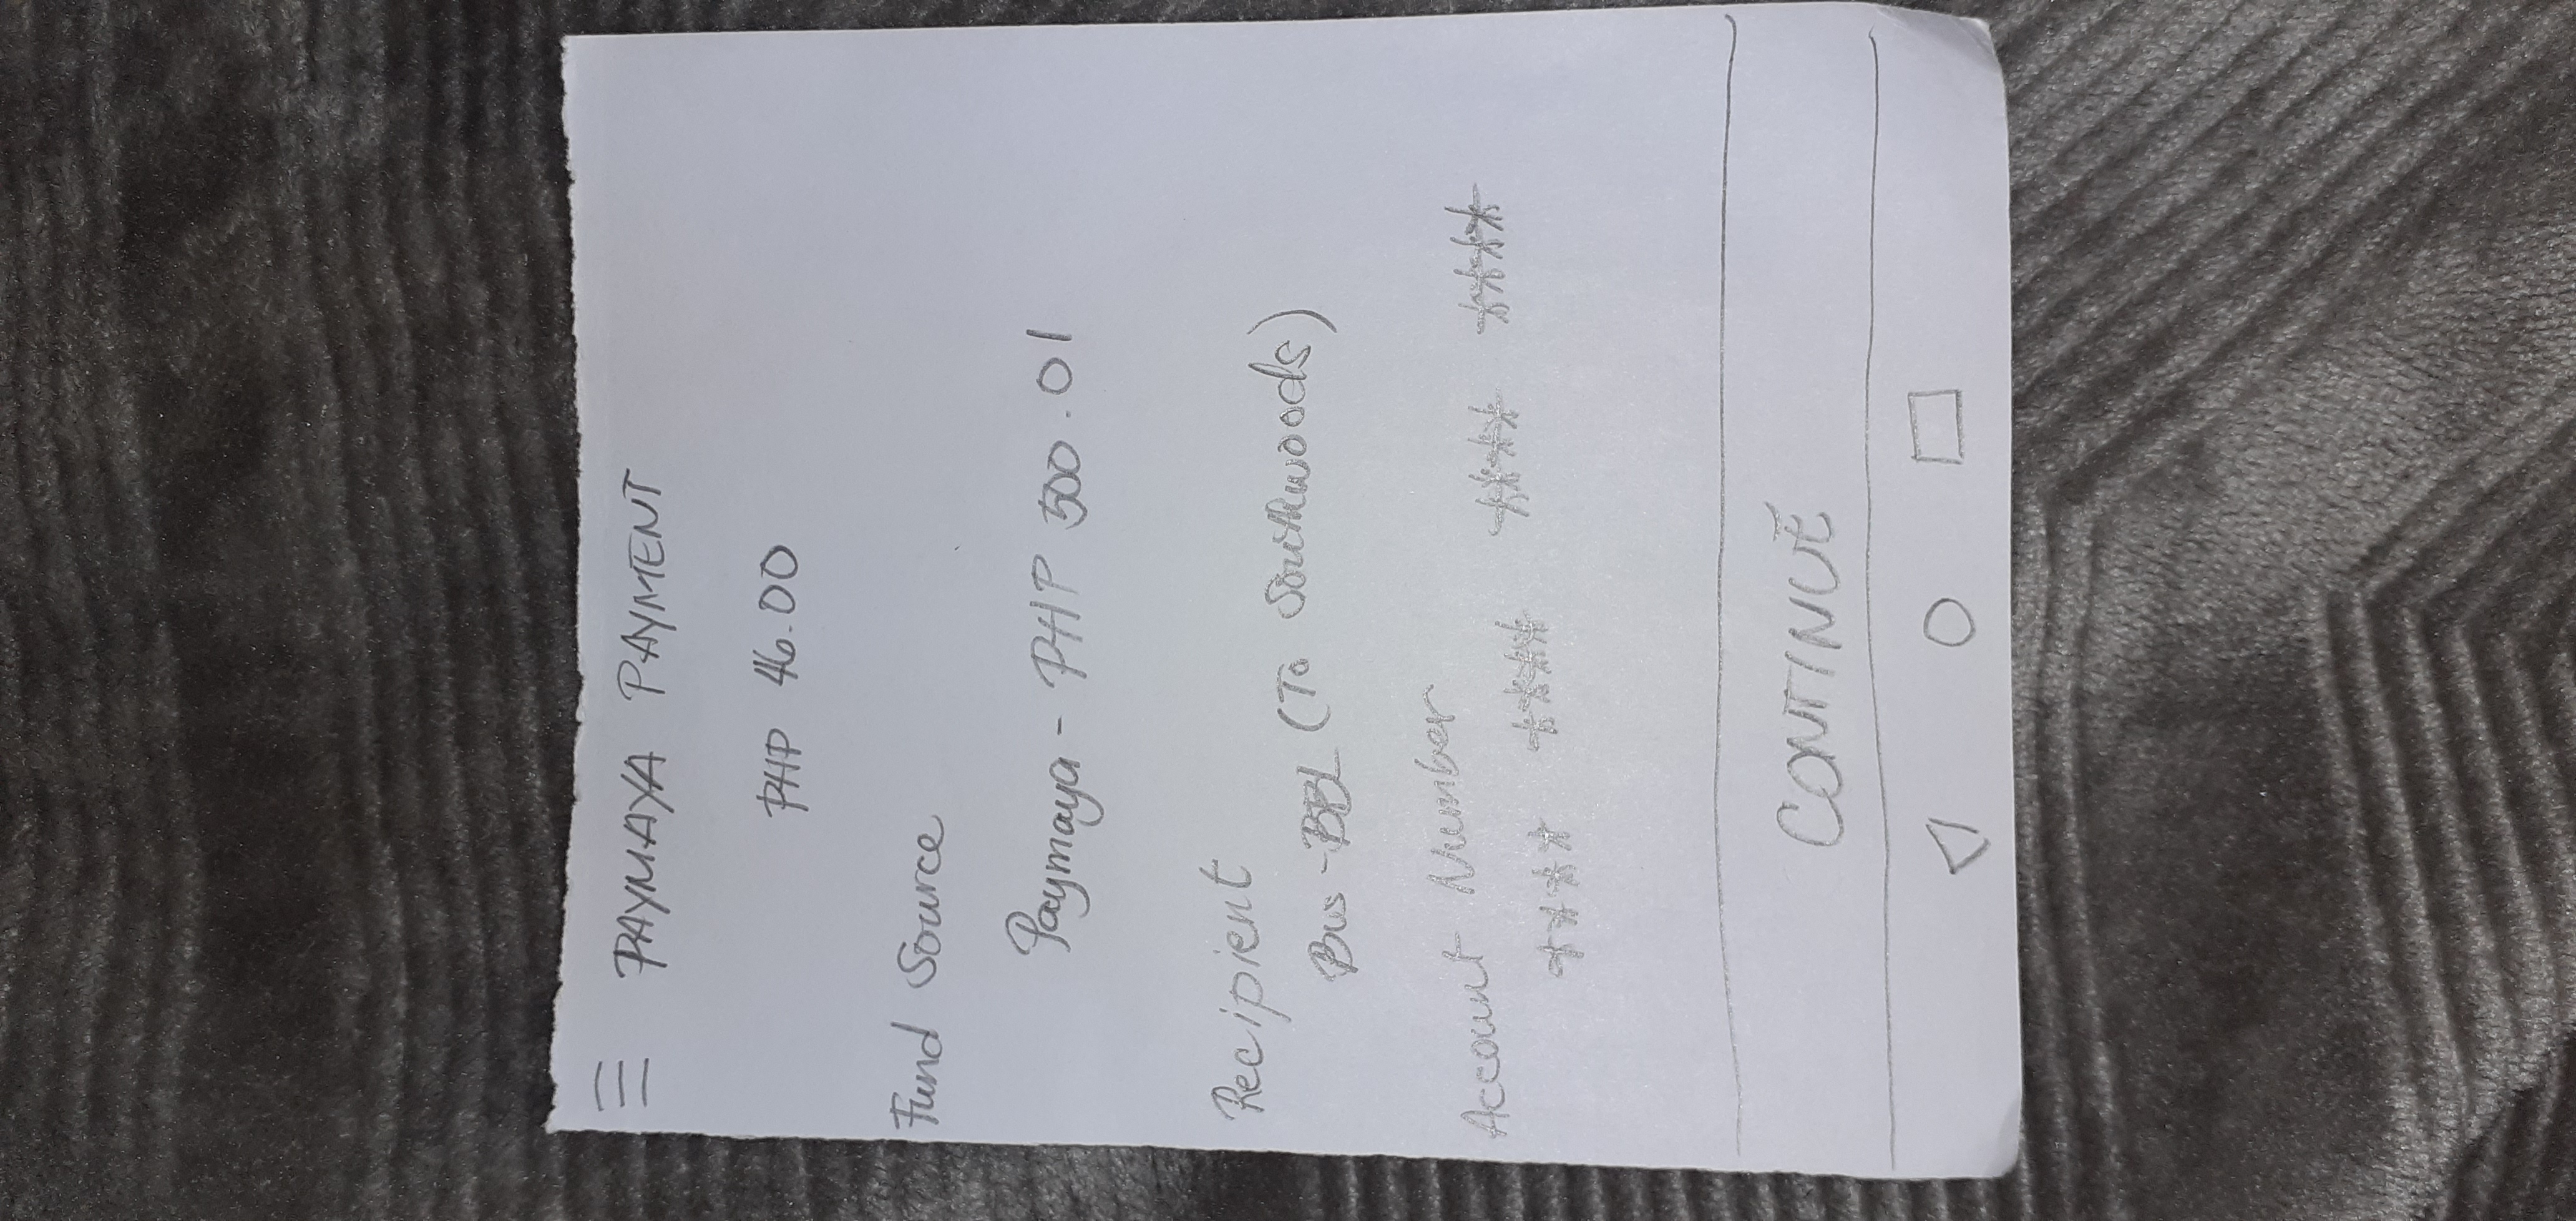 PAYMAYA PAYMENT
PHP 46.00
Fund Source
Paymaya - PHP 500.01
Recipient
Bus - BBL (To Southwoods)
Account Number
**** **** **** ****
CONTINUE